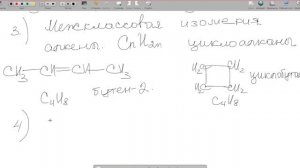 3) Межклассовая изомерия
алкены. CnH2n циклоалканы
CH3–CH=CH–CH3 H2C CH2
бутен-2. H2C CH2 циклобутан
C4H8 C4H8
4)